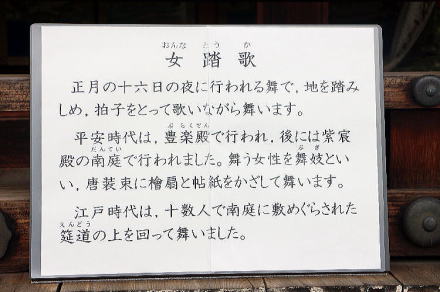 おんな とう か
女踏歌
正月の十六日の夜に行われる舞で，地を踏み
しめ，拍子をとって歌いながら舞います。
ぶらくでん
平安時代は，豊楽殿で行われ，後には紫宸
だんてい ぶぎ
殿の南庭で行われました。舞う女性を舞妓とい
い，唐装束に檜扇と帖紙をかざして舞います。
江戸時代は，十数人で南庭に敷めぐらされた
えんどう
筵道の上を回って舞いました。